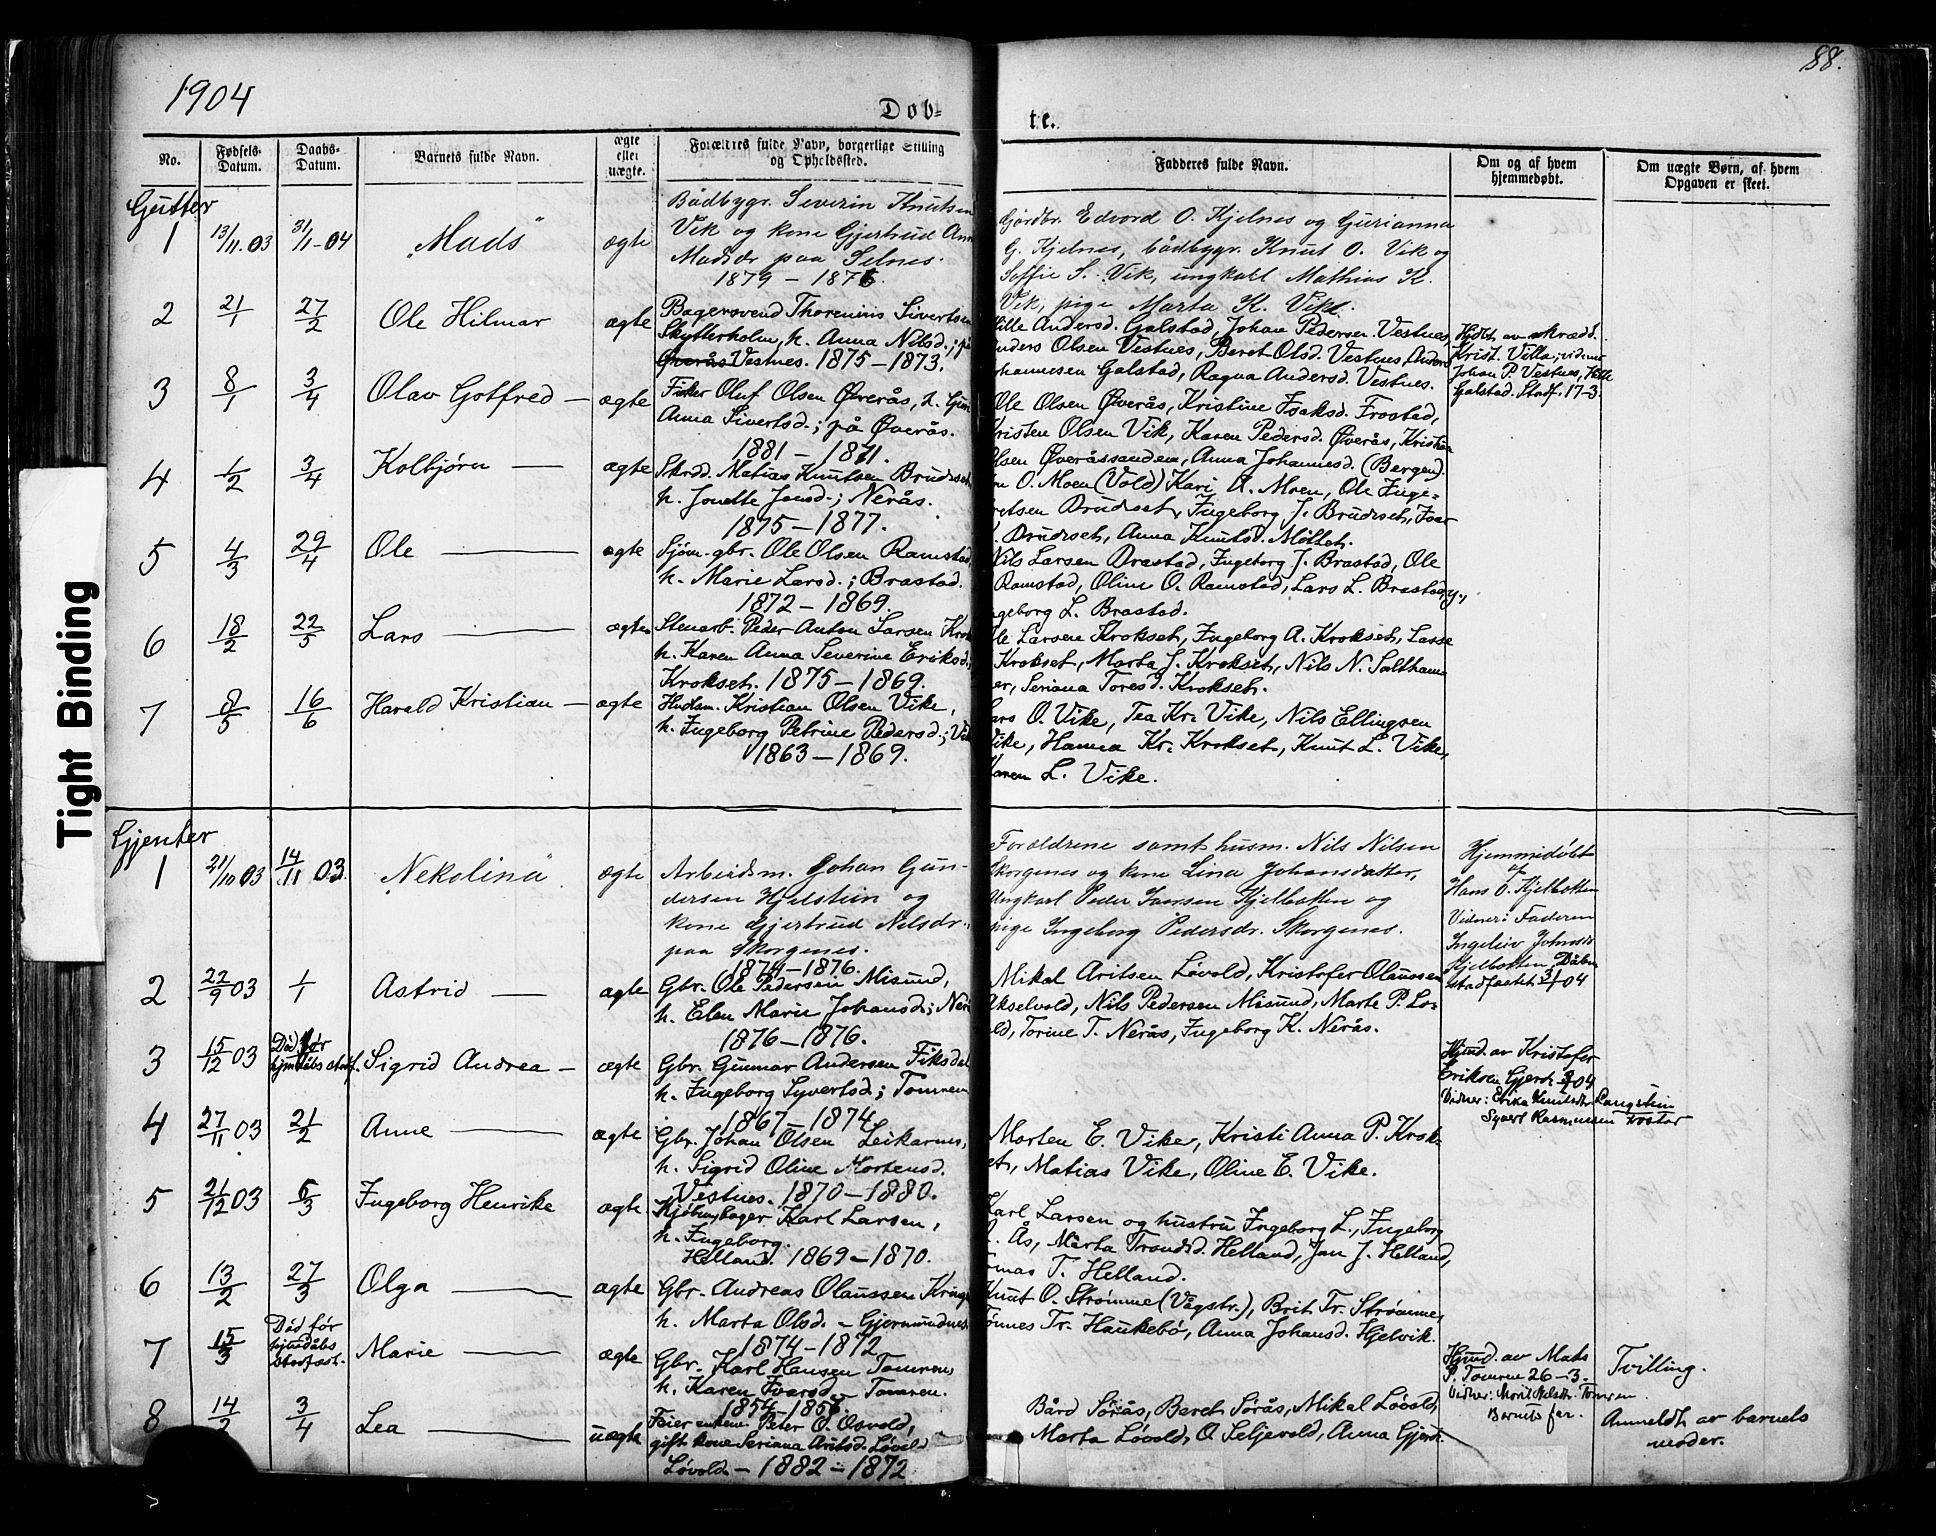 1904
88.
Døb-
te.
No.
Fødsels-
Datum.
Daabs-
Datum.
Barnets fulde Navn.
ægte
eller
uægte.
Forældres fulde Navn, borgerlige Stilling
og Opholdssted.
Fadderes fulde Navn.
Om og af hvem
hjemmedøbt.
Om uægte Børn, af hvem
Opgaven er skeet.
Tight Binding
Gutter
1 13/11.03 31/1-04 "Mads" ægte
Baadbygr. Severin Knutsen
Vik og kone Gjertrud Ann
Madsdr paa Selnes.
1879 - 1876.
Gårdbr. Edvord O. Kjelnes og Gurianna
G. Kjelnes, bådbygr. Knut O. Vik og
Soffie S. Vik, ungkarl Mathias K.
Vik, pige Marta K. Vik.
2 21/1 27/2 Ole Hilmar ægte
Bagersvend Thorenius Sivertsen
Skytterholm, h. Anna Nilsd.; på
Øverås Vestnes. 1875-1873.
Andersd. Galstad, Johan Pedersen Vestnes,
Anders Olsen Vestnes, Beret Olsd. Vestnes, Anders
Johannesen Galstad, Ragna Andersd. Vestnes.
Hjdbt. av skrædd.
Krist. Villa; vidner
Johan P. Vestnes,
Galstad. Stadf. 17-3.
3 8/1 3/4 Olav Gotfred — ægte
Fisker Oluf Olsen Øverås, h. Guri
Anna Sivertsd.; på Øverås.
1881 - 1871.
Ole Olsen Øverås, Kristine Isaksd. Frostad,
Kristen Olsen Vik, Karen Pedersd. Øverås, Kristian
Olsen Øveråssanden, Anna Johannesd. (Bergen).
4 1/2 3/4 Kolbjørn — ægte
Skrdd. Matias Knutsen Brudeset
h. Jonette Jonsd.; Nerås.
1875-1877.
O. Moen (Vold) Kari A. Moen, Ole Inge-
bretsen Brudeset, Ingeborg J. Brudeset, Iver
Brudeset, Anna Knutsd. Mittet.
5 4/3 29/4 Ole — ægte
Sjøm. gbr. Ole Olsen Ramstad,
h. Marie Larsd.; Brastad.
1872-1869.
Nils Larsen Brastad, Ingeborg J. Brastad, Ole
Ramstad, Oline O. Ramstad, Lars L. Brastad,
Ingeborg L. Brastad.
6 18/2 22/5 Lars — ægte
Stenarb. Peder Anton Larsen Krok
h. Karen Anna Severine Eriksd.;
Krokset. 1875-1869.
Ole Larsen Krokset, Ingeborg A. Krokset, Lasse
Krokset, Marta J. Krokset, Nils N. Saltham-
mer, Seriana Toresd. Krokset.
7 8/5 16/6 Harald Kristian — ægte
Husm. Kristian Olsen Vike,
h. Ingeborg Petrine Pedersd.; Vik
1863-1869.
Lars O. Vike, Tea Kr. Vike, Nils Ellingsen
Vike, Hanna Kr. Krokset, Knut L. Vike,
Karen L. Vike.
Gjenter
1 21/10 03 14/11 03. "Nekolina" ægte
Arbeidsm. Johan Gun-
dersen Hjelstein og
kone Gjertrud Nilsdr.
paa Skorgenes.
1874-1876.
Forældrene samt husm. Nils Nilsen
Skorgenes og kone Lina Johansdatter,
Ungkarl Peder Larsen Kjelbotten og
pige Ingeborg Pedersdr. Skorgenes.
Hjemmedøbt
af
Hans O. Kjelbotten
Vidner: Faderen
Ingeleiv Johnsdr
Kjelbotten. Dåben
stadfæstet 3/1 04
2 22/9 03 1/1 Astrid — ægte
Gbr. Ole Pedersen Misund,
h. Elen Marie Johansd.; Nerås
1876-1876.
Mikal Aritsen Løvold, Kristofer Olaussen
Akselvold, Nils Pedersen Misund, Marte P. Lø-
vold, Torine T. Nerås, Ingeborg K. Nerås.
3 15/12 03 Død før
hjmdåbs stadf. Sigrid Andrea — ægte
Gbr. Gunnar Andersen Fiksdal
h. Ingeborg Syvertsd; Tomren
1867-1874
Hjmd. av Kristofer
Eriksen Gjerde 04
Vidner: Erika Knutsdtr. Langstein
Syvert Rasmussen Frostad
4 27/11 03 21/2 Anne — ægte
Gbr. Johan Olsen Leikarnes,
h. Sigrid Oline Mortensd.
Vestnes. 1870-1880.
Morten E. Vike, Kristi Anna P. Krok-
set, Matias Vike, Oline E. Vike.
5 21/12 03 6/3 Ingeborg Henrike ægte
Kjøbm, bager Karl Larsen,
h. Ingeborg.
Helland. 1869-1870.
Karl Larsen og hustru Ingeborg L., Ingeborg
O. Ås, Marta Trondsd. Helland, Jan J. Helland,
Tomas T. Helland.
6 13/2 27/3 Olga — ægte
Gbr. Andreas Olaussen Kringe
h. Marta Olsd. - Gjermundnes.
1874-1872
Knut O. Strømme (Vågstr.), Brit Tr. Strømme,
Tønnes Tr. Haukebø, Anna Johansd. Hjelvik.
7 15/3 Død før
hjmdåbs
stadfæst. Marie — ægte
Gbr. Karl Hansen Tomren,
h. Karen Ivarsd. - Tomren.
1854-1856
Hjmd. av Mats
P. Tomren 26-3.
Vidner: Marit Nilsdtr. Tomren.
Barnets far.
Tvilling.
8 14/2 3/4 Lea — uægte
Feier enkem. Peter O. Osvold,
gift kone Seriana Aritsd. Løvold
Løvold - 1882-1872
Bård Sørås, Beret Sørås, Mikal Løvold,
Marta Løvold, O. Seljevold, Anna Gjerde.
Anmeldt av barnets
moder.